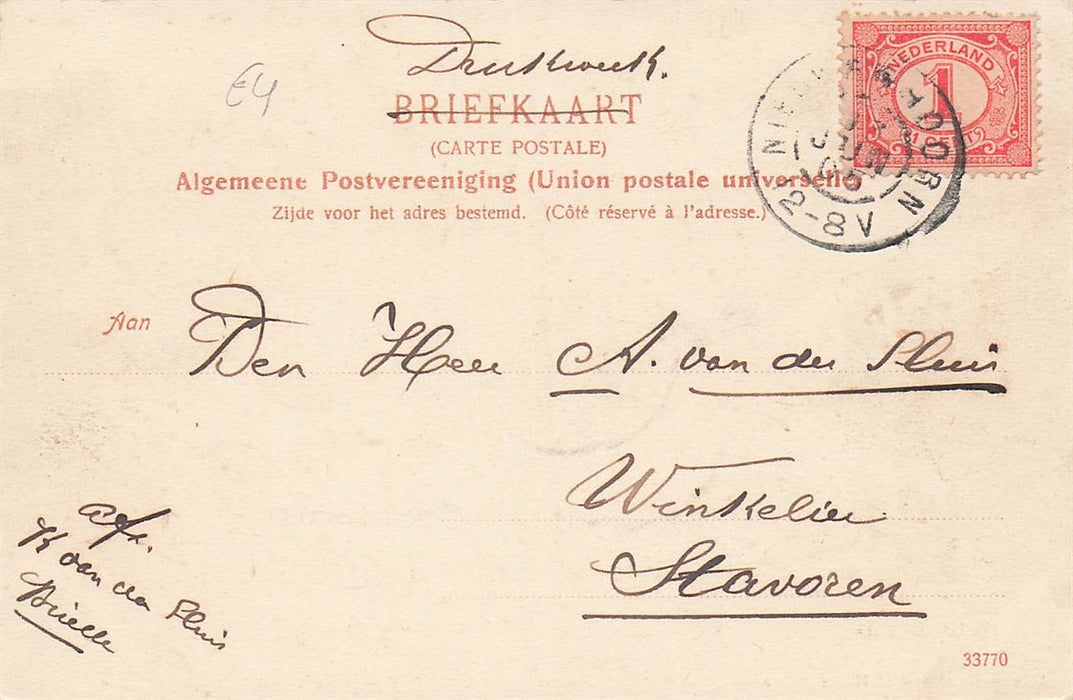 Drukwerk.
E4
BRIEFKAART
(CARTE POSTALE)
Algemeene Postvereeniging (Union postale universelle)
Zijde voor het adres bestemd. (Côté réservé à l'adresse.)
NEDERLAND
1
1 CENT
JUN
05
12-8V
Aan
Den Heer A. van der Sluis
Winkelier
Stavoren
afz.
K van der Sluis
Brielle
33770